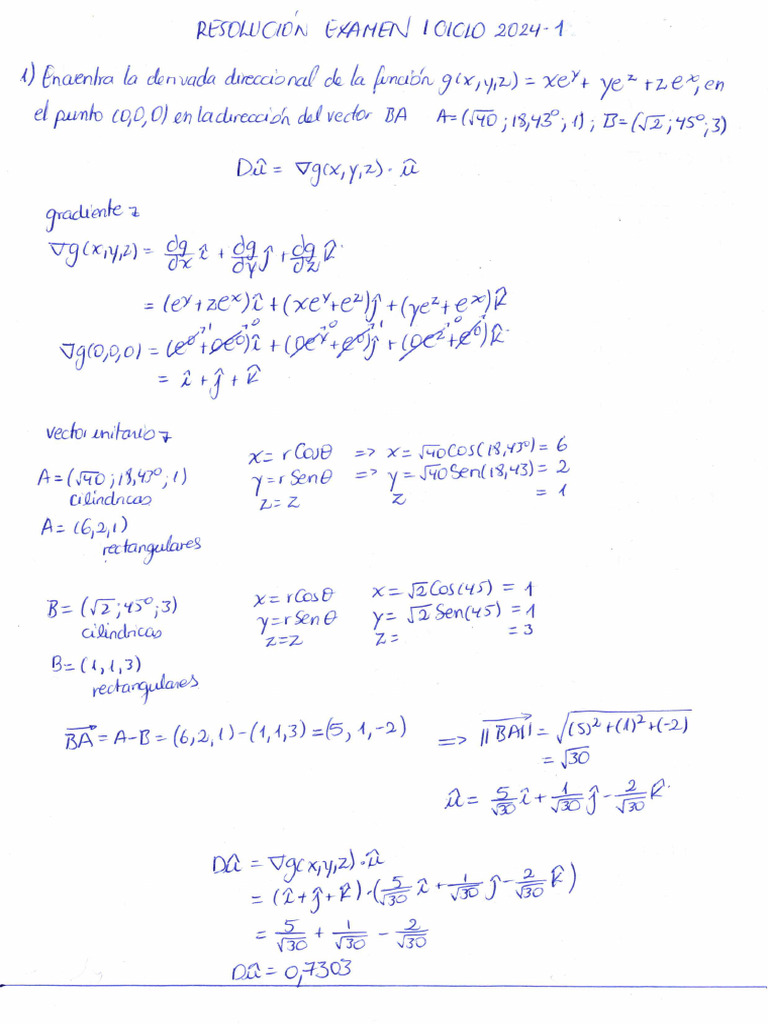 RESOLUCIÓN EXAMEN I CICLO 2024-1
1) Encuentra la derivada direccional de la función g(x,y,z) = xe^y + ye^z + ze^x, en
el punto (0,0,0) en la dirección del vector BA A=(√40 ; 18,43° ; 1) ; B=(√2 ; 45° ; 3)
Dû = ∇g(x,y,z) · û
gradiente
∇g(x,y,z) = dg/dx î + dg/dy ĵ + dg/dz k̂
= (e^y + ze^x)î + (xe^y + e^z)ĵ + (ye^z + e^x)k̂
∇g(0,0,0) = (e^0 + 0e^0)î + (0e^y + e^0)ĵ + (0e^z + e^0)k̂
= î + ĵ + k̂
vector unitario
A=(√40 ; 18,43° ; 1)
cilindricas
x = r Cosθ => x = √40 Cos(18,43°) = 6
y = r Senθ => y = √40 Sen(18,43) = 2
z = z z = 1
A = (6,2,1)
rectangulares
B = (√2 ; 45° ; 3)
cilindricas
x = r Cosθ x = √2 Cos(45) = 1
y = r Senθ y = √2 Sen(45) = 1
z = z z = = 3
B = (1,1,3)
rectangulares
BA = A-B = (6,2,1)-(1,1,3) = (5, 1, -2) => ||BA|| = √(5)²+(1)²+(-2)
= √30
û = 5/√30 î + 1/√30 ĵ - 2/√30 k̂
Dû = ∇g(x,y,z) · û
= (î + ĵ + k̂) · (5/√30 î + 1/√30 ĵ - 2/√30 k̂)
= 5/√30 + 1/√30 - 2/√30
Dû = 0,7303